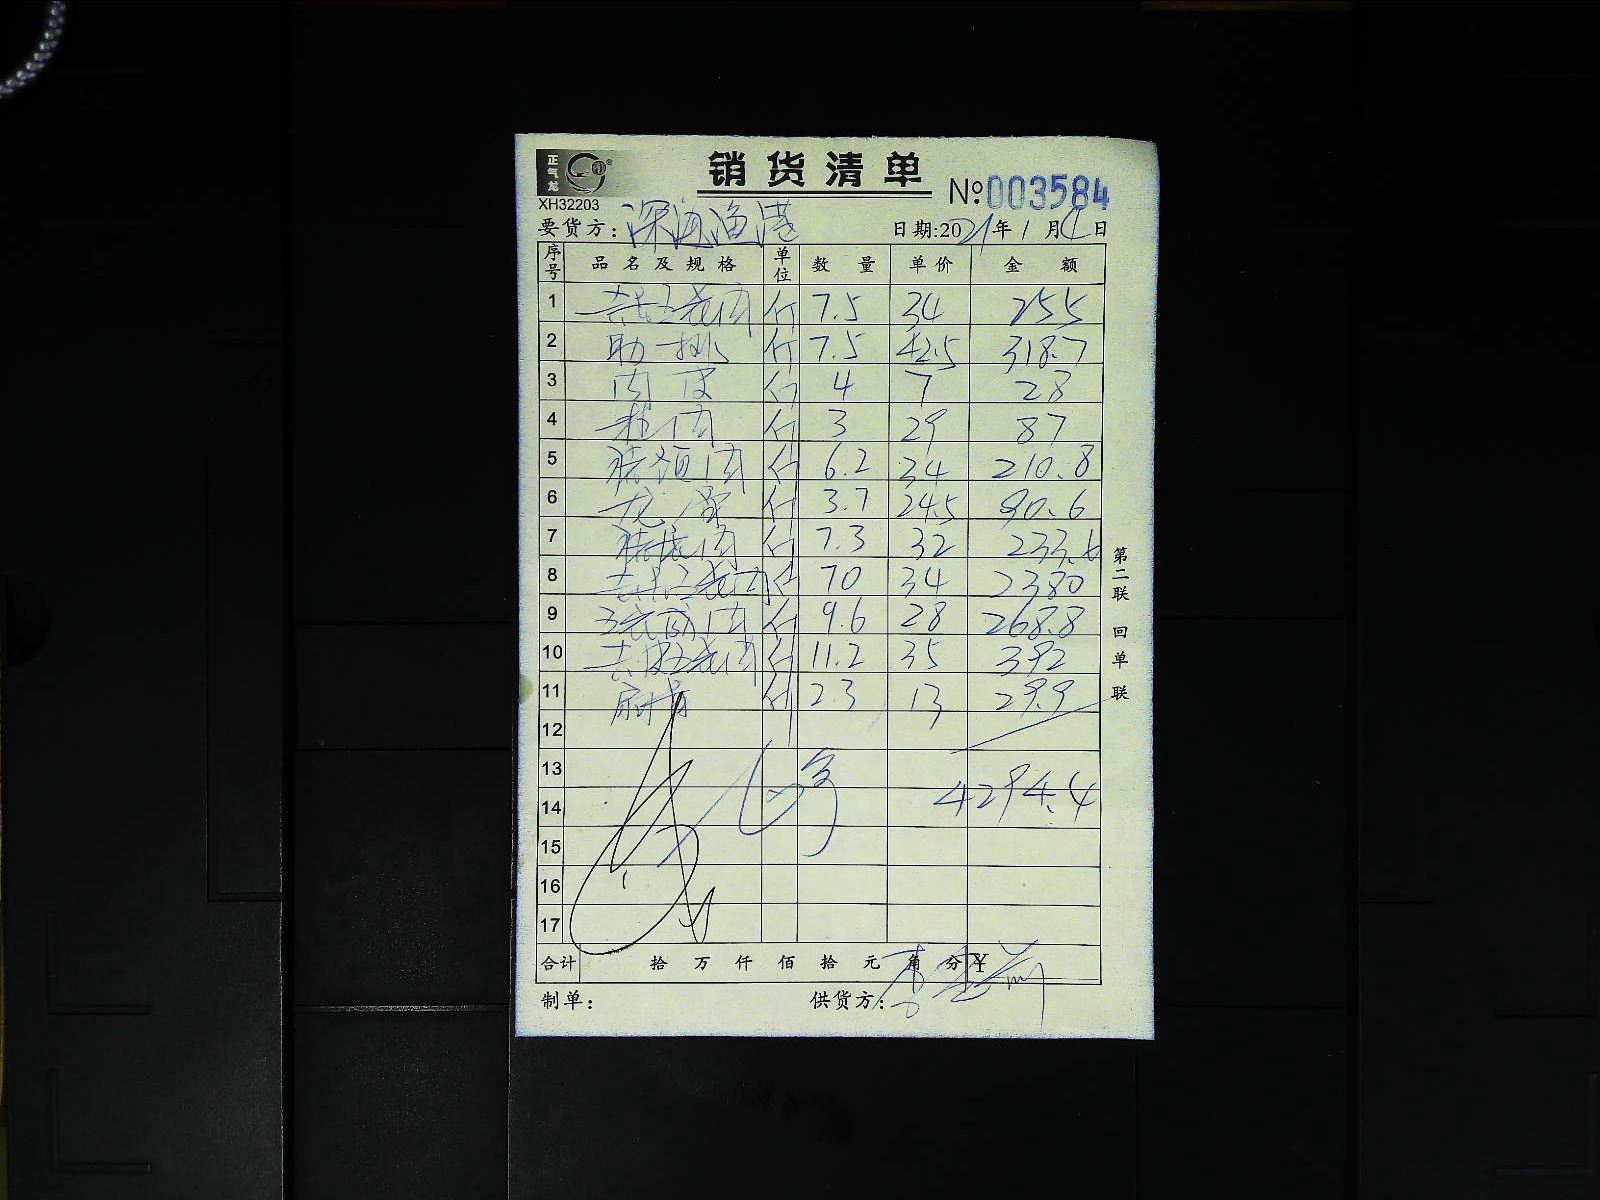 正气龙
销货清单
XH32203
№003584
要货方：深海渔港 日期:2021年1月 日
序号 品名及规格 单位 数量 单价 金额
1 去皮五花肉 斤 7.5 34 255
2 肋排 斤 7.5 42.5 318.7
3 肉皮 斤 4 7 28
4 肉 斤 3 29 87
5 肉 斤 6.2 34 210.8
6 龙骨 斤 3.7 24.5 90.6
7 肉 斤 7.3 32 233.6
8 去皮五花肉 斤 70 34 2380
9 五花 肉 斤 9.6 28 268.8
10 去皮五花肉 斤 11.2 35 392
11 骨 斤 2.3 13 29.9
12
13
14 4294.4
15
16
17
合计 拾 万 仟 佰 拾 元 角 分 ¥
制单： 供货方：
第二联 回单联